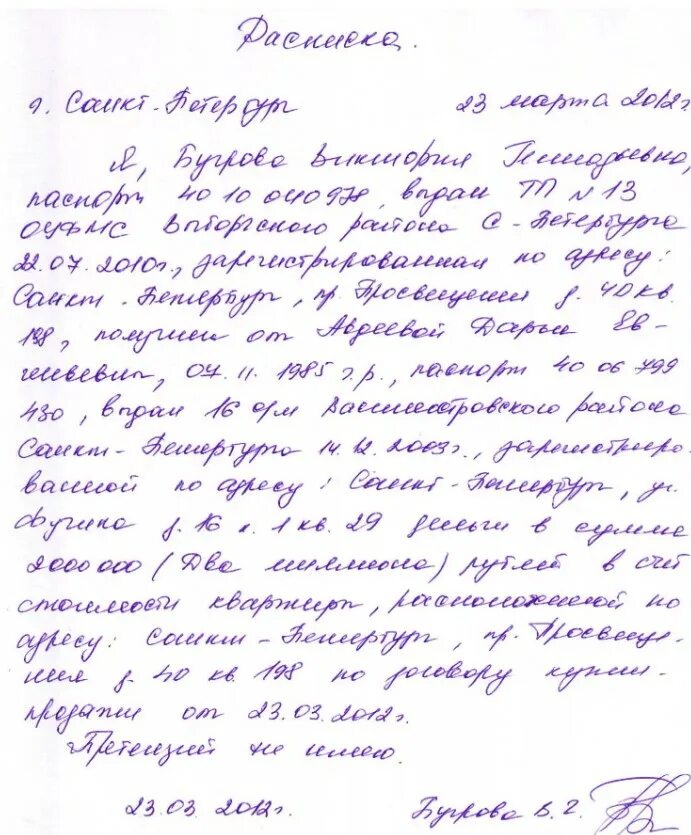 Расписка.
г. Санкт-Петербург 23 марта 2012г.
Я, Бугрова Виктория Геннадьевна,
паспорт 40 10 040978, выдан ТП №13
ОУФМС Выборгского района С-Петербурга
22.07.2010г., зарегистрированная по адресу:
Санкт-Петербург, пр. Просвещения д. 40 кв.
198, получила от Авдеевой Дарьи Ев-
гньевны, 07.11.1985 г.р., паспорт 40 06 799
430, выдан 16 о/м Василеостровского района
Санкт-Петербурга 14.12.2003г., зарегистриро-
ванной по адресу: Санкт-Петербург, ул.
д. 16 к. 1 кв. 29 деньги в сумме
2000000 (Два миллиона) рублей в счёт
стоимости квартиры, расположенной по
адресу: Санкт-Петербург, пр. Просвеще-
ния д. 40 кв. 198 по договору купли-
продажи от 23.03.2012г.
Претензий не имею.
23.03.2012г. Бугрова В. Г.